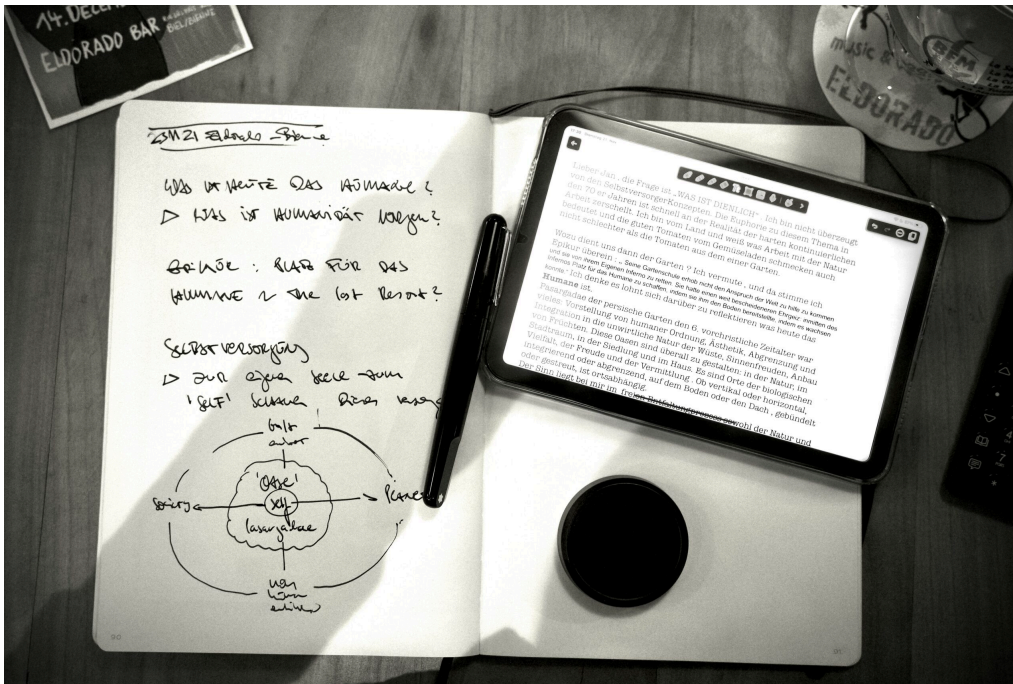 14. DECEM
ELDORADO BAR
BIEL/BIENNE
Eldorado
WAS IST HEUTE DAS HUMANE?
▷ WAS IST HUMANITÄT MORGEN?
EPIKUR: PLATZ FÜR DAS
HUMANE the last Resort?
SELBSTVERSORGUNG
▷ ZUR eigenen Seele zum
'SELF'
'OASE'
self
Pasargadae
Society
Planet
90
Lieber Jan, die Frage ist „WAS IST DIENLICH". Ich bin nicht überzeugt
von den SelbstversorgerKonzepten. Die Euphorie zu diesem Thema in
den 70 er Jahren ist schnell an der Realität der harten kontinuierlichen
Arbeit zerschellt. Ich bin vom Land und weiß was Arbeit mit der Natur
bedeutet und die guten Tomaten vom Gemüseladen schmecken auch
nicht schlechter als die Tomaten aus dem einer Garten.
Wozu dient uns dann der Garten ? Ich vermute , und da stimme ich
Epikur überein : „ Seine Gartenschule erhob nicht den Anspruch der Welt zu hilfe zu kommen
und sie von ihrem Eigenen Inferno zu retten. Sie hatte einen weit bescheideneren Ehrgeiz: inmitten des
Infernos Platz für das Humane zu schaffen, indem sie ihm den Boden bereitstellte, indem es wachsen
konnte." Ich denke es lohnt sich darüber zu reflektieren was heute das
Humane ist.
Pasargadae der persische Garten den 6. vorchristliche Zeitalter war
vieles: Vorstellung von humaner Ordnung, Ästhetik, Abgrenzung und
Integration in die unwirtliche Natur der Wüste, Sinnenfreuden, Anbau
von Früchten. Diese Oasen sind überall zu gestalten: in der Natur, im
Stadtraum, in der Siedlung und im Haus. Es sind Orte der biologischen
Vielfalt, der Freude und der Vermittlung . Ob vertikal oder horizontal,
integrierend oder abgrenzend, auf dem Boden oder den Dach , gebündelt
oder gestreut, ist ortsabhängig.
Der Sinn liegt bei mir im freien Entfaltungsprozess sowohl der Natur und
91
music &
ELDORADO